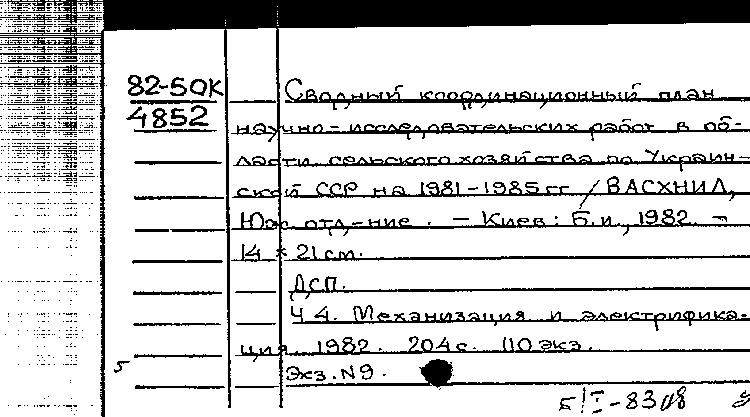 82-50К
4852
Сводный координационный план
научно-исследовательских работ в об-
ласти сельского хозяйства по Украин-
ской ССР на 1981-1985 гг. / ВАСХНИЛ,
Юж. отд-ние. - Киев: Б.и., 1982. -
14 × 21 см.
ДСП.
Ч 4. Механизация и электрифика-
ция. 1982. 204 с. 110 экз.
Экз. N9.
5